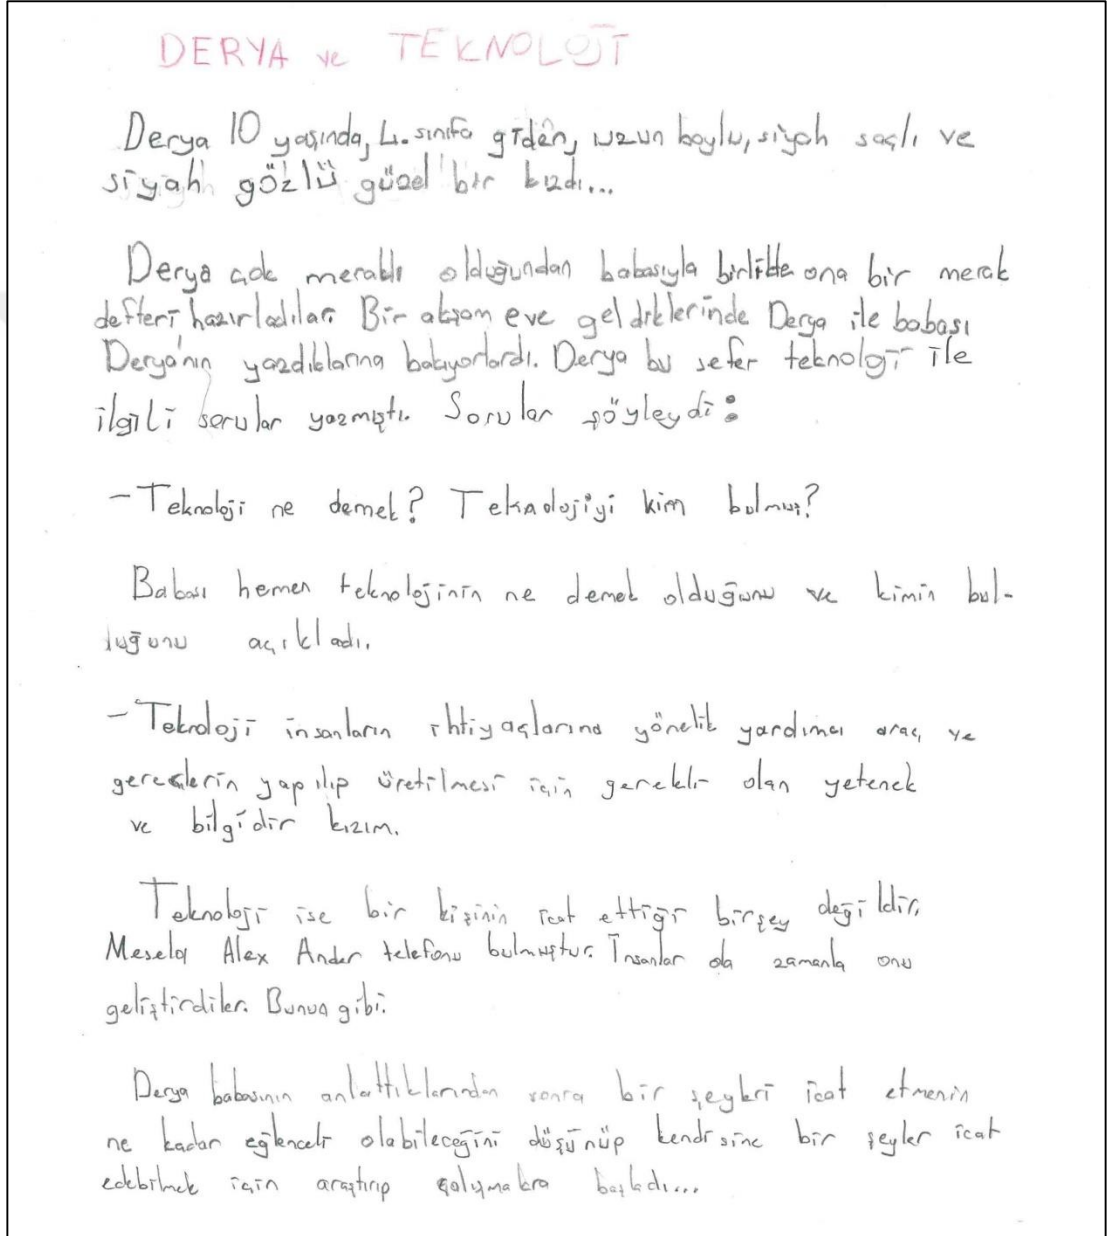 DERYA ve TEKNOLOJİ
Derya 10 yaşında, 4. sınıfa giden, uzun boylu, siyah saçlı ve
siyah gözlü güzel bir kızdı...
Derya çok meraklı olduğundan babasıyla birlikte ona bir merak
defteri hazırladılar. Bir akşam eve geldiklerinde Derya ile babası
Derya'nın yazdıklarına bakıyorlardı. Derya bu sefer teknolgi ile
ilgili sorular yazmıştı. Sorular şöyleydi:
-Teknoloji ne demek? Teknolojiyi kim bulmuş?
Babası hemen teknolojinin ne demek olduğunu ve kimin bul-
duğunu açıkladı.
-Teknoloji insanların ihtiyaçlarına yönelik yardımcı araç ve
gereçlerin yapılıp üretilmesi için gerekli olan yetenek
ve bilgidir kızım.
Teknoloji ise bir kişinin icat ettiği birşey değildir.
Mesela Alex Ander telefonu bulmuştur. İnsanlar da zamanla onu
geliştirdiler. Bunun gibi.
Derya babasının anlattıklarından sonra bir şeyleri icat etmenin
ne kadar eğlenceli olabileceğini düşünüp kendisine bir şeyler icat
edebilmek için araştırıp çalışmakra başladı...